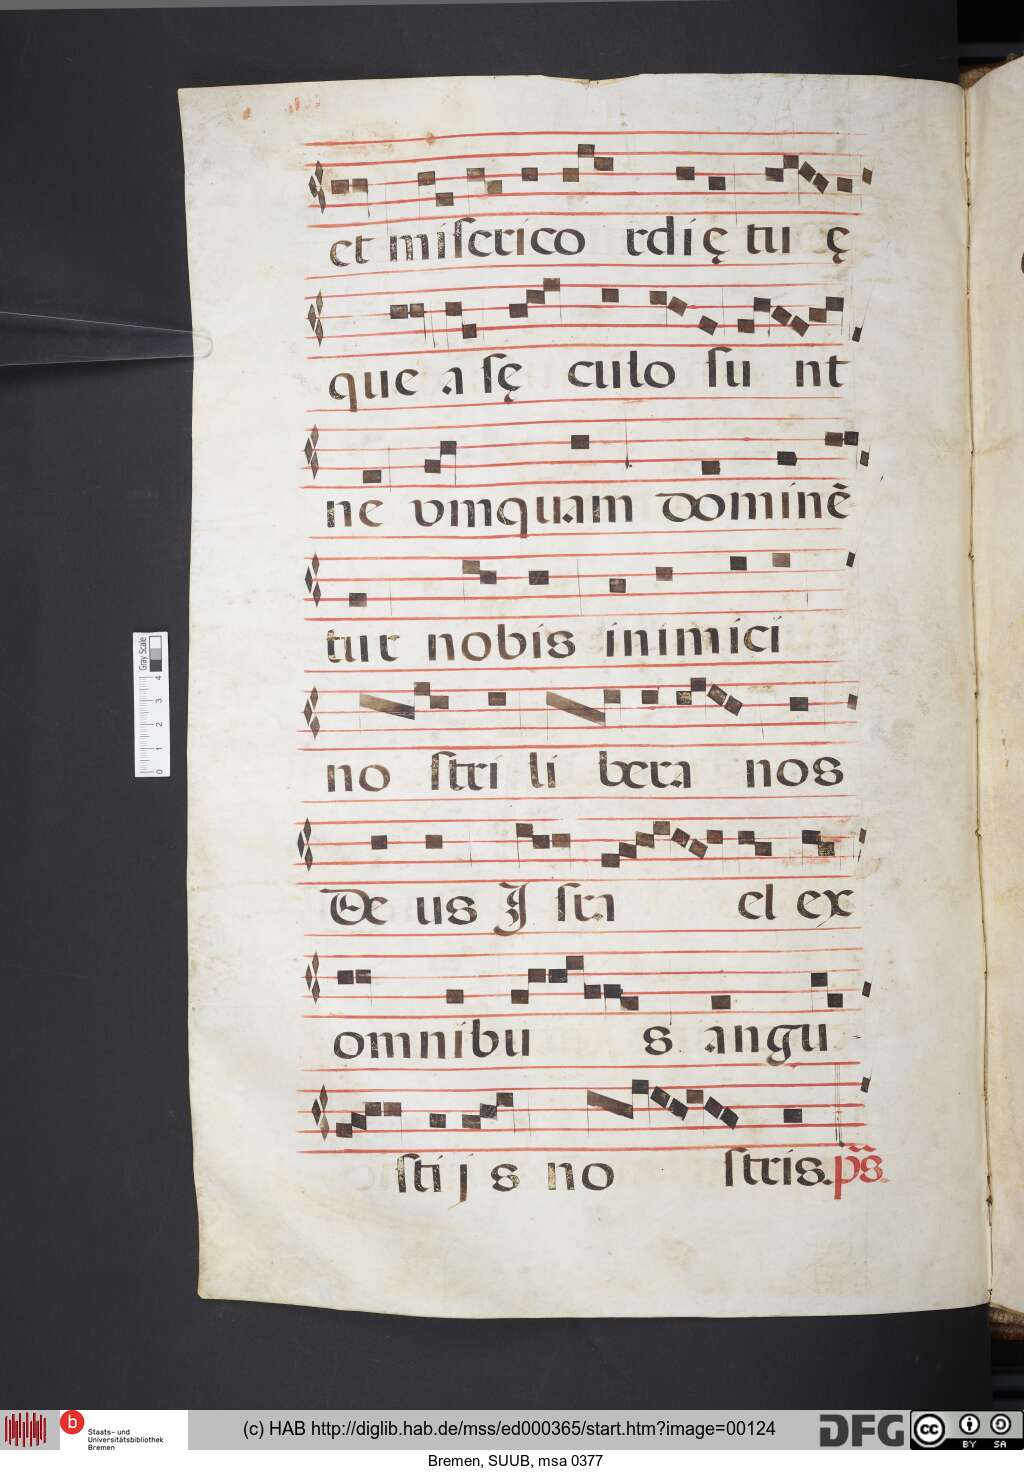 et misericordię tuę
que a sęculo sunt
ne vmquam dominē
tur nobis inimici
nostri libera nos
Deus Isra el ex
omnibus angu
stijs nostris. p̄s.
Gray Scale
0 1 2 3 4
b Staats- und
Universitätsbibliothek
Bremen
(c) HAB http://diglib.hab.de/mss/ed000365/start.htm?image=00124
DFG
cc BY SA
Bremen, SUUB, msa 0377